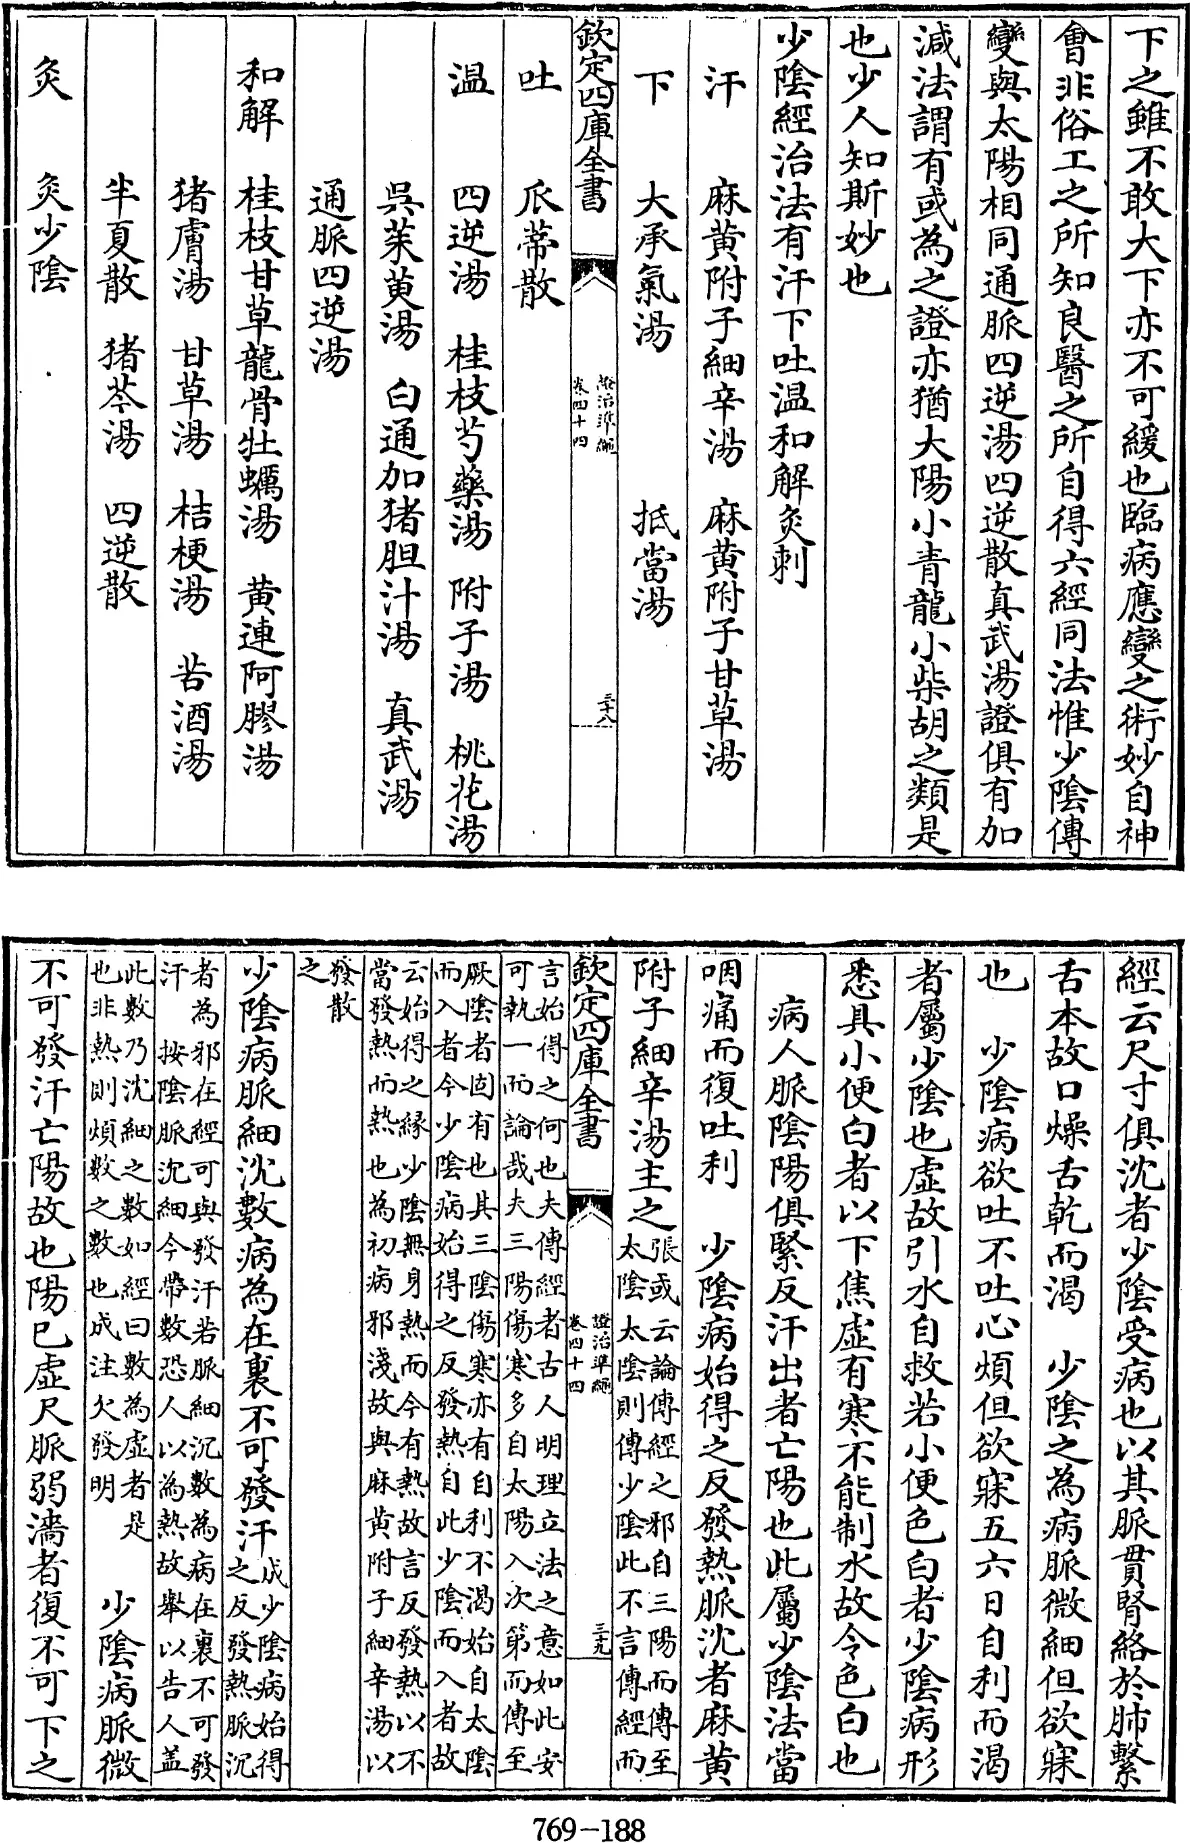 下之雖不敢大下亦不可緩也臨病應變之術妙自神
會非俗工之所知良醫之所自得六經同法惟少陰傳
變與太陽相同通脈四逆湯四逆散真武湯證俱有加
減法謂有或為之證亦猶大陽小青龍小柴胡之類是
也少人知斯妙也
少陰經治法有汗下吐温和解灸刺
汗　麻黄附子細辛湯　麻黄附子甘草湯
下　大承氣湯　抵當湯
欽定四庫全書
證治準繩
卷四十四
三十八
吐　瓜蒂散
温　四逆湯　桂枝芍藥湯　附子湯　桃花湯
吳茱萸湯　白通加猪胆汁湯　真武湯
通脈四逆湯
和解　桂枝甘草龍骨牡蠣湯　黄連阿膠湯
猪膚湯　甘草湯　桔梗湯　苦酒湯
半夏散　猪苓湯　四逆散
灸　灸少陰
經云尺寸俱沈者少陰受病也以其脈貫腎絡於肺繫
舌本故口燥舌乾而渴　少陰之為病脈微細但欲寐
也　少陰病欲吐不吐心煩但欲寐五六日自利而渴
者屬少陰也虛故引水自救若小便色白者少陰病形
悉具小便白者以下焦虛有寒不能制水故令色白也
病人脈陰陽俱緊反汗出者亡陽也此屬少陰法當
咽痛而復吐利　少陰病始得之反發熱脈沈者麻黄
附子細辛湯主之
張或云論傳經之邪自三陽而傳至
太陰太陰則傳少陰此不言傳經而
欽定四庫全書
證治準繩
卷四十四
三十九
言始得之何也夫傳經者古人明理立法之意如此安
可執一而論哉夫三陽傷寒多自太陽入次第而傳至
厥陰者固有也其三陰傷寒亦有自利不渴始自太陰
而入者今少陰病始得之反發熱自此少陰而入者故
云始得之緣少陰無身熱而今有熱故言反發熱以不
當發熱而熱也為初病邪淺故與麻黄附子細辛湯以
發散
之
少陰病脈細沈數病為在裏不可發汗
成少陰病始得
之反發熱脈沉
者為邪在經可與發汗若脈細沉數為病在裏不可發
汗　按陰脈沉細今帶數恐人以為熱故舉以告人葢
此數乃沈細之數如經曰數為虛者是
也非熱則煩數之數也成注欠發明
少陰病脈微
不可發汗亡陽故也陽已虛尺脈弱濇者復不可下之
769-188